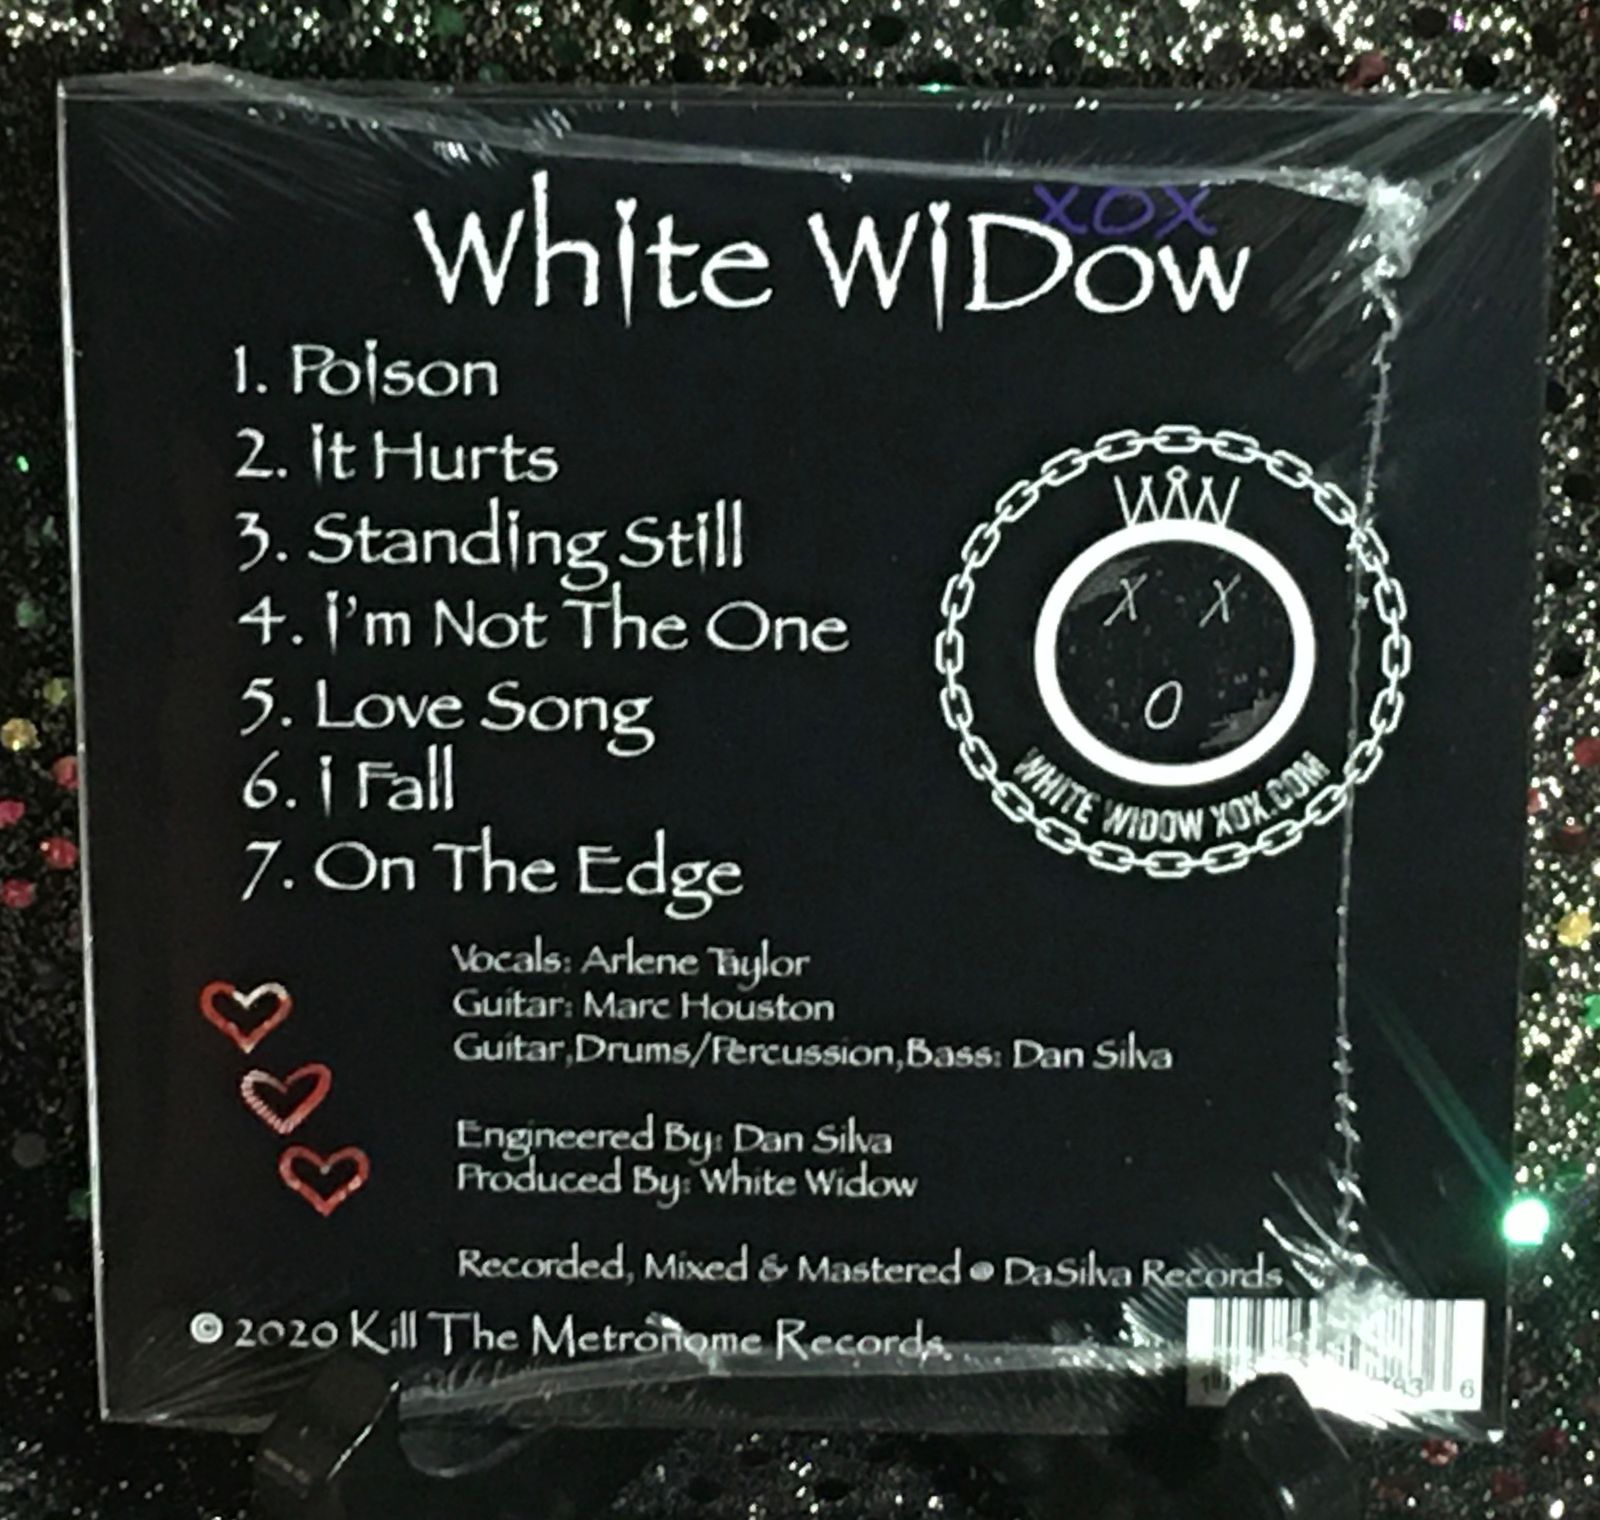 White WiDow
xox
1. Poison
2. It Hurts
3. Standing Still
4. I'm Not The One
5. Love Song
6. I Fall
7. On The Edge
WW
X X
O
WHITE WIDOW XOX.COM
Vocals: Arlene Taylor
Guitar: Marc Houston
Guitar,Drums/Percussion,Bass: Dan Silva
Engineered By: Dan Silva
Produced By: White Widow
Recorded, Mixed & Mastered @ DaSilva Records
© 2020 Kill The Metronome Records.
6